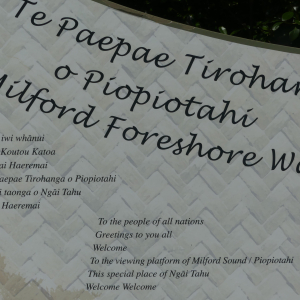 Te Paepae Tirohan
o Piopiotahi
Milford Foreshore Wa
iwi whānui
Koutou Katoa
Haeremai
aepae Tirohanga o Piopiotahi
taonga o Ngāi Tahu
Haeremai
To the people of all nations
Greetings to you all
Welcome
To the viewing platform of Milford Sound / Piopiotahi
This special place of Ngāi Tahu
Welcome Welcome